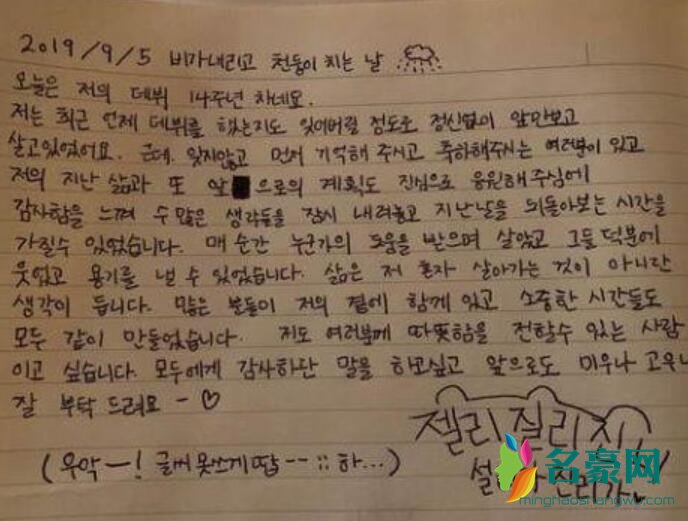 2019/9/5 비가내리고 천둥이 치는 날
오늘은 저의 데뷔 14주년 차네요.
저는 최근 언제 데뷔를 했는지도 잊어버릴 정도로 정신없이 앞만보고
살고있었어요. 근데, 잊지않고 먼저 기억해 주시고 축하해주시는 여러분이 있고
저의 지난 삶과 또 앞으로의 계획도 진심으로 응원해주심에
감사함을 느껴 수많은 생각들을 잠시 내려놓고 지난날을 뒤돌아보는 시간을
가질수 있었습니다. 매 순간 누군가의 도움을 받으며 살았고 그들 덕분에
웃었고 용기를 낼 수 있었습니다. 삶은 저 혼자 살아가는 것이 아니란
생각이 듭니다. 많은 분들이 저의 곁에 함께 있고 소중한 시간들도
모두 같이 만들었습니다. 저도 여러분께 따뜻함을 전할수 있는 사람
이고 싶습니다. 모두에게 감사하단 말을 하고싶고 앞으로도 미우나 고우나
잘 부탁 드려요 - ♡
젤리 질리
(우악ㅡ! 글씨 못쓰게땁-- ;; 하...)
설 진리가
名豪网
minghaoshangwu.com